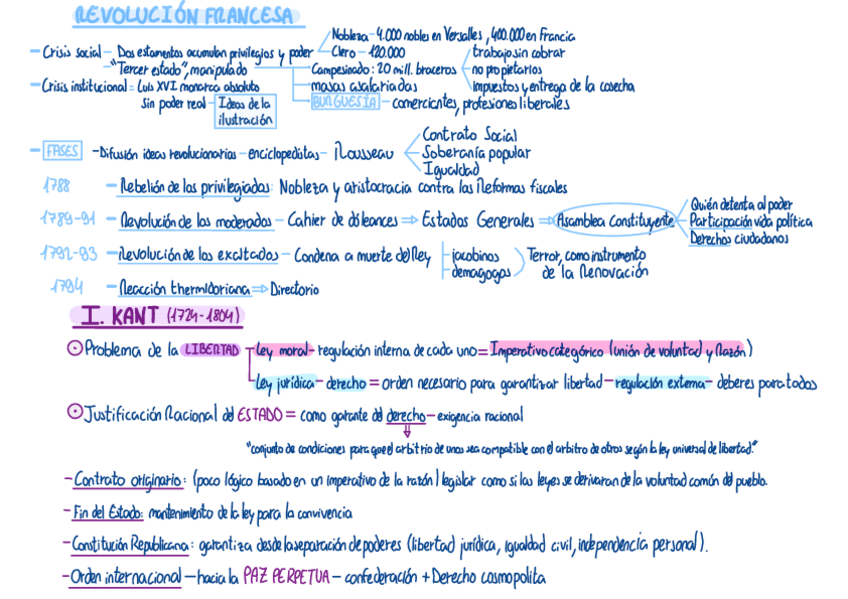 REVOLUCIÓN FRANCESA
Nobleza - 4.000 nobles en Versalles, 400.000 en Francia
- Crisis social - Dos estamentos acumulan privilegios y poder
Clero - 120.000
trabajo sin cobrar
- "Tercer estado", manipulado
Campesinado: 20 mill. braceros
no propietarios
- Crisis institucional = Luis XVI monarca absoluto
masas asalariadas
impuestos y entrega de la cosecha
Sin poder real - Ideas de la ilustración
BURGUESÍA - comerciantes, profesiones liberales
Contrato Social
- FASES - Difusión ideas revolucionarias - enciclopedistas - Rousseau
Soberanía popular
Igualdad
1788 - Rebelión de los privilegiados: Nobleza y aristocracia contra las Reformas fiscales
Quién detenta al poder
1789-91 - Revolución de los moderados - Cahier de dóleances ⇒ Estados Generales ⇒ Asamblea Constituyente
Participación vida política
Derechos ciudadanos
1792-93 - Revolución de los exaltados - Condena a muerte del Rey
jacobinos
demagogos
Terror, como instrumento
de la Renovación
1794 - Reacción thermidoriana ⇒ Directorio
I. KANT (1724-1804)
⊙ Problema de la LIBERTAD - ley moral - regulación interna de cada uno = Imperativo categórico (unión de voluntad y Razón)
ley jurídica - derecho = orden necesario para garantizar libertad - regulación externa - deberes para todos
⊙ Justificación Racional del ESTADO = como garante del derecho - exigencia racional
⇓
"conjunto de condiciones para que el arbitrio de unos sea compatible con el arbitro de otros según la ley universal de libertad."
- Contrato originario: (poco lógico basado en un imperativo de la razón) legislar como si las leyes se derivaran de la voluntad común del pueblo.
- Fin del Estado: mantenimiento de la ley para la convivencia
- Constitución Republicana: garantiza desde la separación de poderes (libertad jurídica, igualdad civil, independencia personal).
- Orden internacional - hacia la PAZ PERPETUA - confederación + Derecho cosmopolita